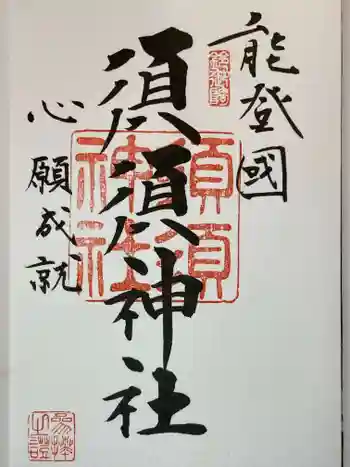 能登國
須須神社
心願成就
須須
神社